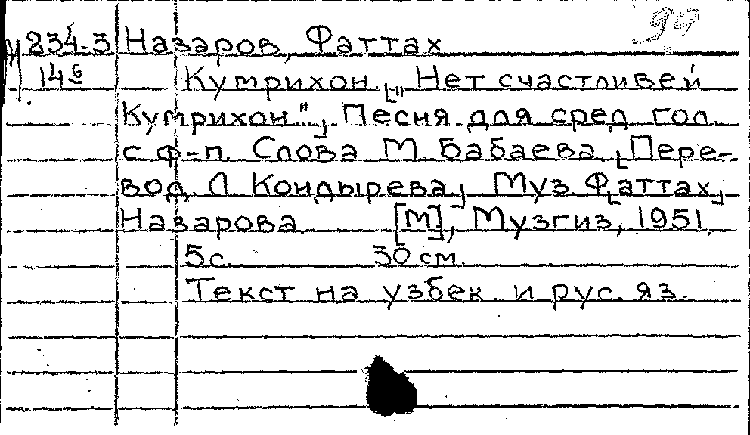 М 234-3 Назаров, Фаттах
14б Кумрихон. ["Нет счастливей
Кумрихон"]. Песня для сред. гол.
с ф-п. Слова М. Бабаева. [Пере-
вод Л. Кондырева]. Муз. Ф[аттах]
Назарова. [М], Музгиз, 1951.
5 с. 30 см.
Текст на узбек. и рус. яз.